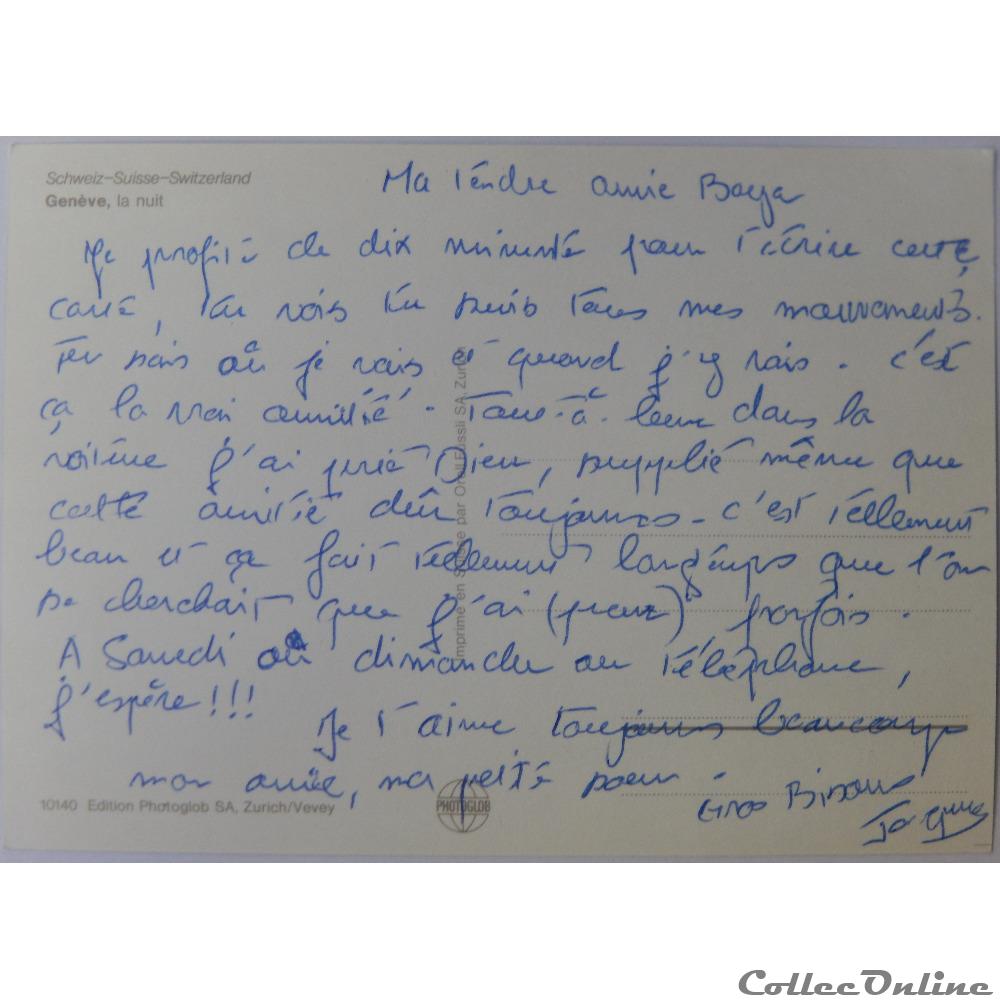 Schweiz–Suisse–Switzerland
Genève, la nuit
Ma tendre amie Baya
Je profite de dix minute pour t'écrire cette
carte, tu vois tu suis tous mes mouvements.
Tu sais où je vais et quand j'y vais. C'est
ça la vrai amitié. Tout-à-leur dans la
voiture j'ai prié Dieu, supplié même que
cette amitié dur toujours. C'est tellement
beau et ça fait tellement longtemps que l'on
se cherchait que j'ai (peur) parfois.
A Samedi ou dimanche au téléphone,
j'espère!!!
Je t'aime toujours beaucoup
mon amie, ma petite soeur.
Gros Bisous
Jacques
10140 Edition Photoglob SA, Zurich/Vevey
PHOTOGLOB
Imprimé en Suisse par Orell Füssli SA, Zurich
CollecOnline